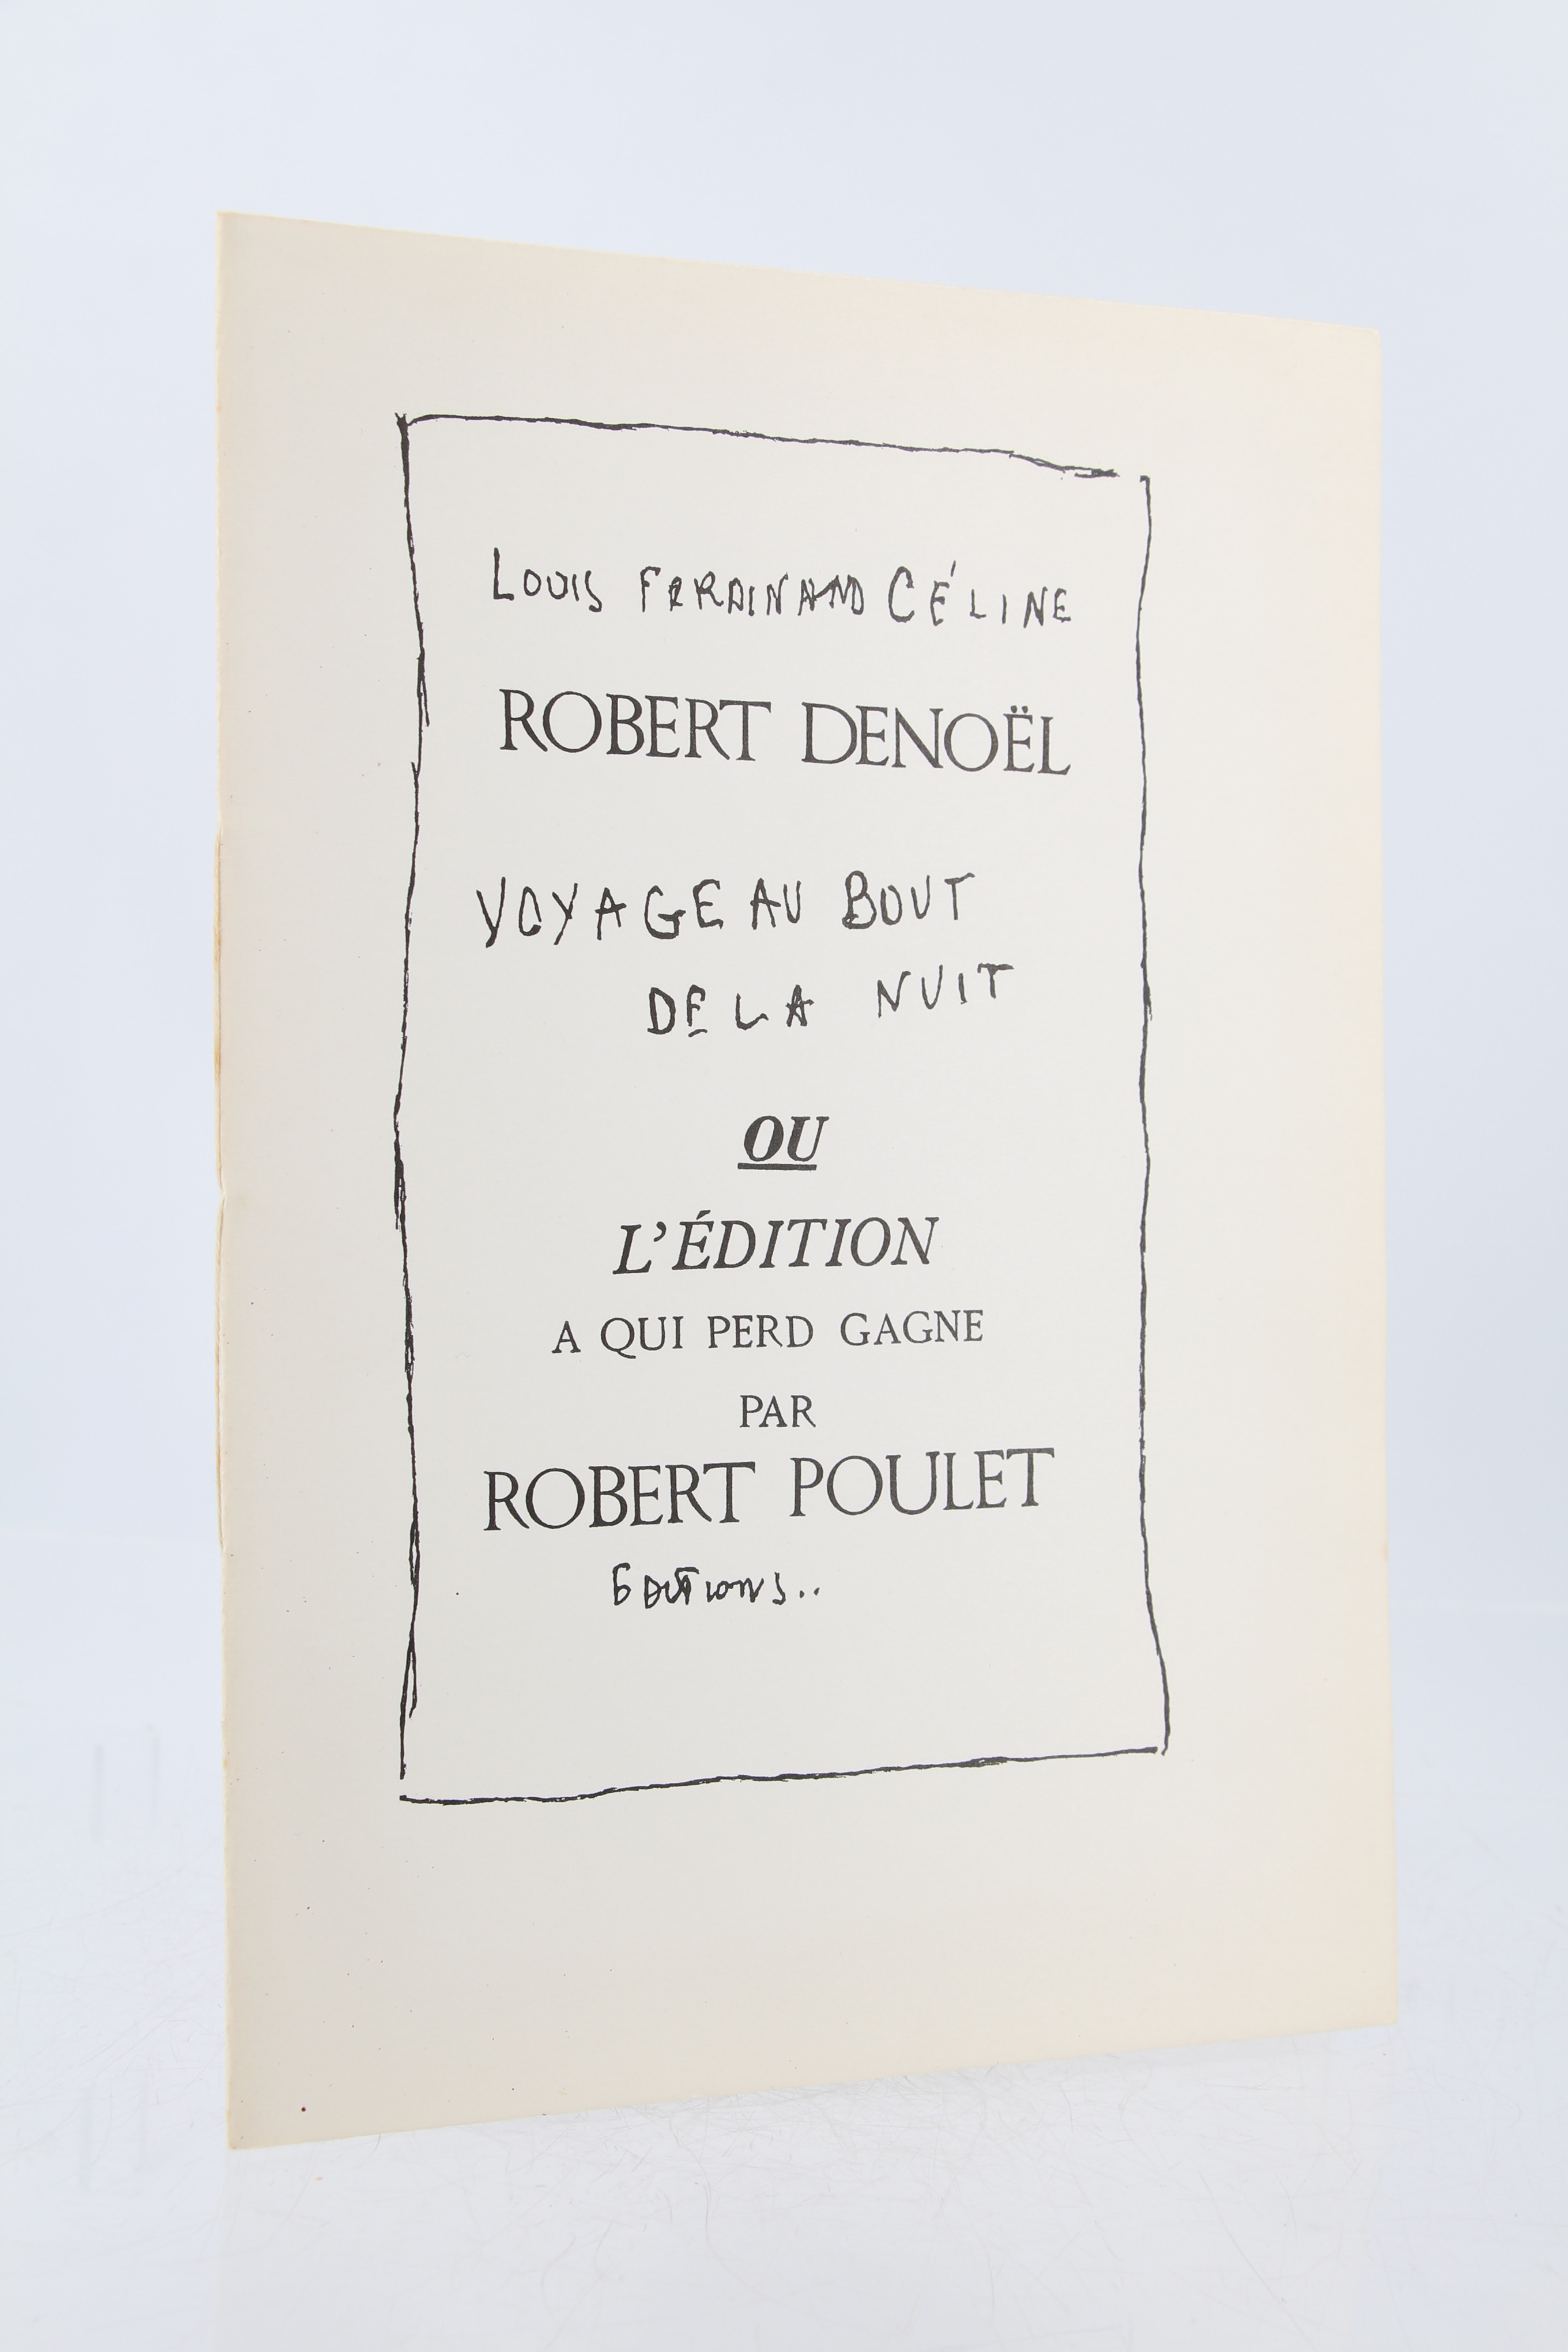 LOUIS FERDINAND CÉLINE
ROBERT DENOËL
VOYAGE AU BOUT
DE LA NUIT
OU
L'ÉDITION
A QUI PERD GAGNE
PAR
ROBERT POULET
EDITIONS..